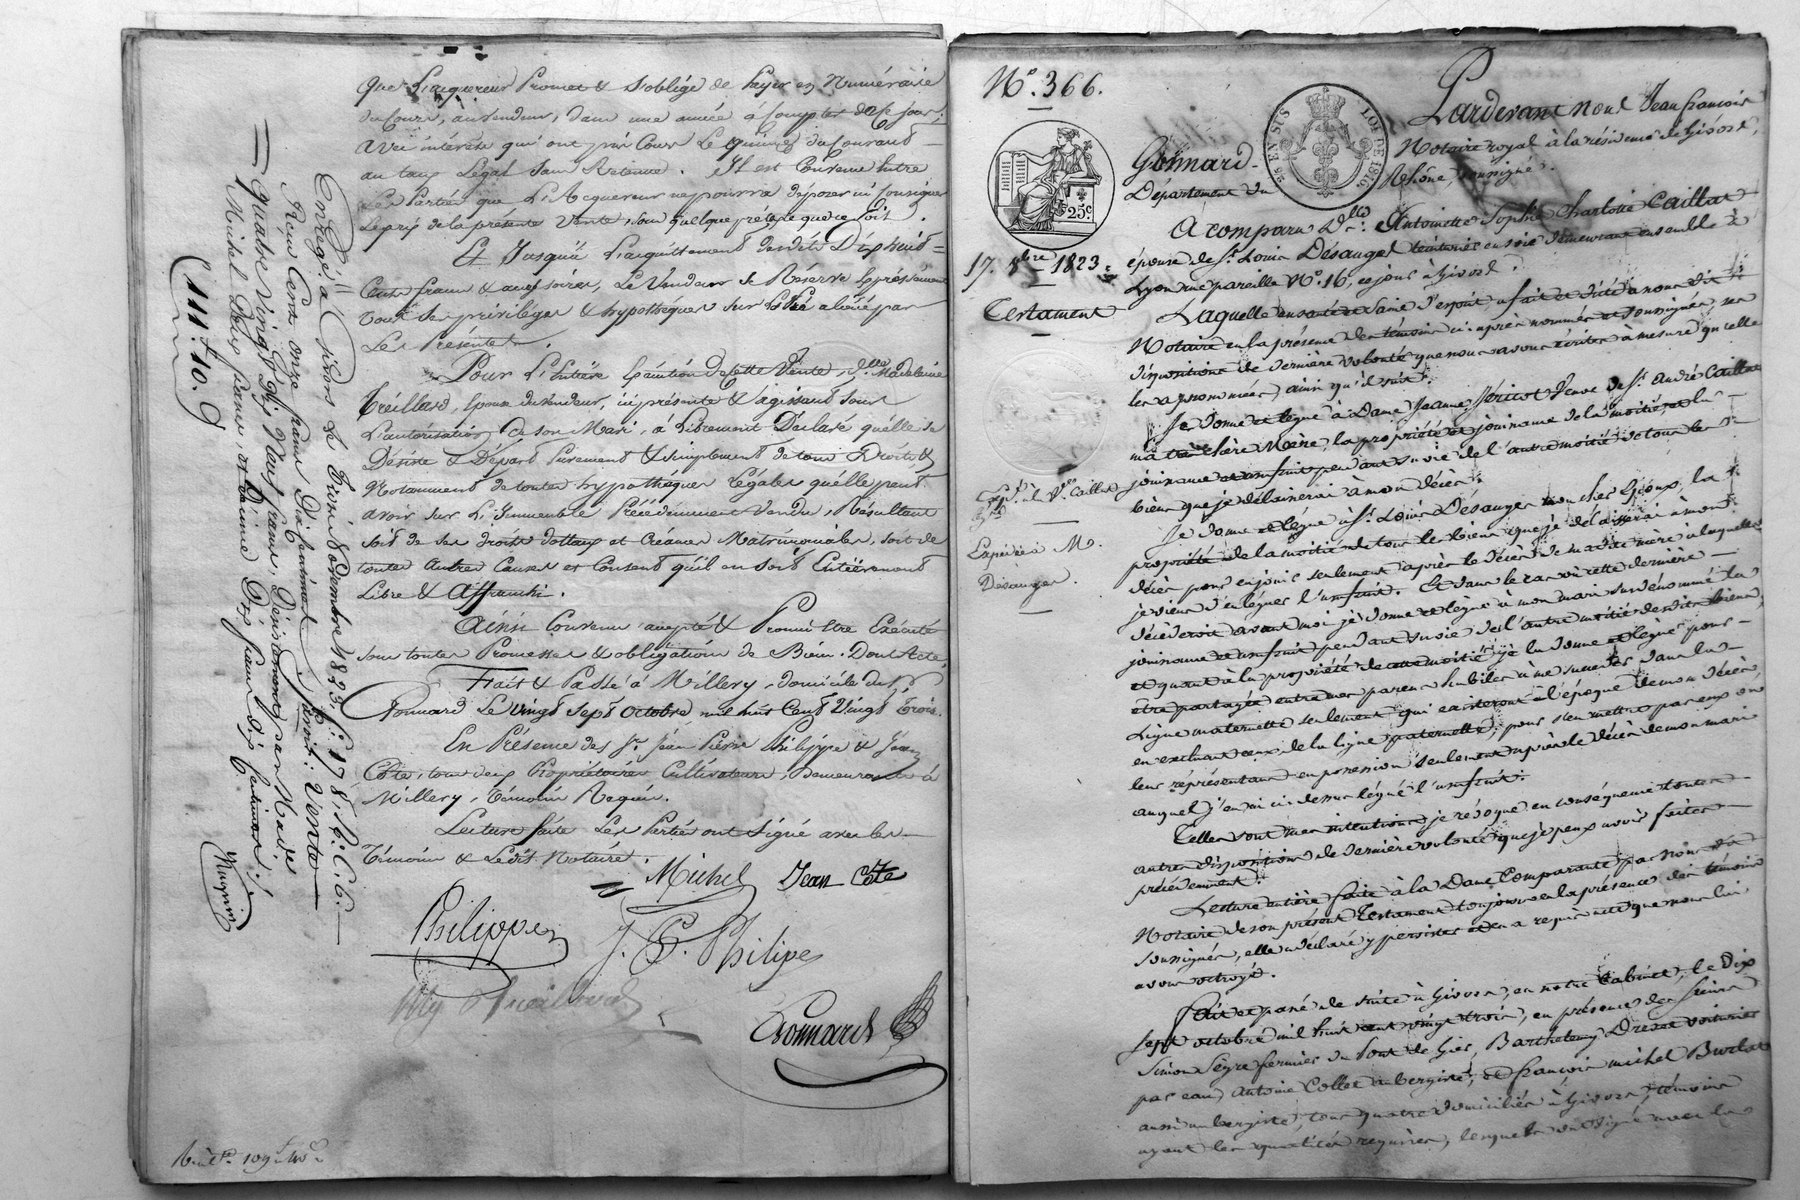 Que L'acquereur Promet & S'oblige de Payer en Numéraire
du Cours, au vendeur, dans une année à Compter de Ce Jour,
avec intérêts qui ont pris Cours Le quinze du Courant
au taux Légal Sans Retenue. Il est Convenu Entre
Les Parties que L'Acquereur ne pourra déposer ni Consigner
Le prix de la présente Vente, sous quelque prétexte que ce Soit.
Et Jusqu'à L'acquittement des dits Dix huit
Cents francs & accessoires, Le Vendeur Se Réserve Expressément
tous Ses privilèges & hypothèques sur aliéné par
Les Présentes.
Pour L'Entière Exécution de Cette Vente, Madeleine
Treillard, Epouse du Vendeur, ici présente & agissant sous
L'autorisation de son Mari, a Librement Déclaré quelle se
Désiste & Départ Purement & Simplement de tous Droits &
Notamment de toutes hypothèques Légales quelle peut
avoir sur L'Immeuble Précédemment Vendu, Résultant
soit de ses droits dottaux et Créances Matrimoniales, soit de
toutes Autres Causes et Consent qu'il en soit Entièrement
Libre & Affranchi.
Ainsi Convenu accepté & Promis Etre Exécuté
sous toutes Promesses & obligations de Biens. Dont Acte,
Fait & Passé à Millery, domicile du
Gonnard Le vingt Sept Octobre, mil huit Cent Vingt Trois.
En Présence des Sr. Jean Pierre Philippe & Jean
Côte, tous deux Propriétaires Cultivateurs, Demeurants à
Millery, Témoins Requis.
Lecture faite Les Parties ont Signé avec les
Témoins & Le dit Notaire.
Michel Jean Côte
Philippe J. P. Philipe
Gonnard
Enregé. à Givors Le trois 1823, fo. 178, R. C. 6.
Reçu Cent onze francs Dix Centimes Savoir: Vente
quatre Vingt Dix Neuf francs,
Michel Deux francs et Dixième Dix francs dix Centimes.
(111 f. 10. c)
No. 366.
25 C
LOI DE 1816
Pardevant nous Jean françois
Gonnard Notaire royal à la résidence de Givors,
Département du Rhône, soussigné.
17. 8bre 1823.
Testament
A comparu De. Antoinette Sophie Charlotte Caillat
épouse de Sr. Louis Désauges teinturier en soie demeurant ensemble à
Lyon rue pareille No. 16, ce jour à Givors.
Laquelle en santé et Saine d'esprit, a fait et dicté à nous dit
Notaire en la présence des témoins ci après nommés et soussignés, ses
dispositions de dernière volonté que nous avons écrites à mesure qu'elle
les a prononcées, ainsi qu'il suit.
Je Donne et lègue à Dame Jeanne Péricot Veuve de Sr. André Caillat
ma très chère Mère, la propriété et jouissance de la moitié, et la
jouissance et usufruit pendant sa vie de l'autre moitié de tous les
biens que je délaisserai à mon décès.
Je donne et lègue à Sr. Louis Désauges mon cher époux, la
propriété de la moitié de tous les biens que je délaisserai à mon
décès pour en jouir seulement après le décès de ma dite mère à laquelle
je viens d'en léguer l'usufruit. Et dans le cas où cette dernière
décèderoit avant moi je donne et lègue à mon mari susdénommé la
jouissance et usufruit pendant sa vie de l'autre moitié desdits biens,
et quant à la propriété de cette moitié je la donne et lègue pour
être partagée entre mes parens habiles à me succéder dans la
Ligne maternelle seulement qui existeront à l'époque de mon décès
en excluant ceux de la ligne paternelle, pour s'en mettre par eux ou
leur représentant en possession seulement après le décès de mon mari
auquel j'en ai ci dessus légué l'usufruit.
Telles sont mes intentions, je révoque en conséquence toutes
autres dispositions de dernière volonté que je peux avoir faites
précédemment.
Lecture entière faite à la Dame Comparante par nous dit
Notaire de son présent Testament toujours en la présence des témoins
soussignés, elle a déclaré y persister et en a requis acte que nous lui
avons octroyé.
Fait et passé de suite à Givors, en notre Cabinet, le Dix
sept octobre mil huit cent vingt trois, en présence des Sieurs
Simon Seyre fermier du Pont de Gier, Barthelemy Drevet voiturier
par eau, Antoine Collet aubergiste, et françois michel Burlat
aussi aubergiste, tous quatre domiciliés à Givors, témoins
ayant les qualités requises, lesquels ont signé avec la
Désauges.